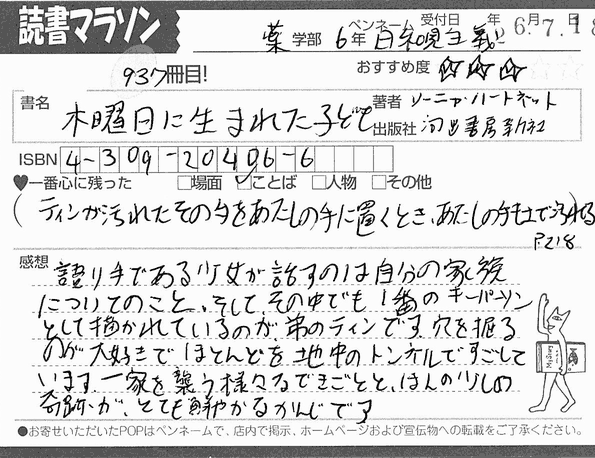 読書マラソン
薬 学部 6年 ペンネーム 自然現主義 受付日 年 6月 7.18日
937冊目!
おすすめ度 ☆☆☆☆☆
書名 木曜日に生まれた子ども
著者 ソーニャ・ハートネット
出版社 河出書房新社
ISBN 4-309-20406-6
♥一番心に残った □場面 ☑ことば □人物 □その他
(ティンが汚れたその手をあたしの手に置くとき、あたしの手も土で汚れる)
P218
感想 語り手である少女が話すのは自分の家族
についてのこと、そして、その中でも1番のキーパーソン
として描かれているのが、弟のティンです。穴を掘る
のが大好きでほとんどを地中のトンネルですごして
います。一家を襲う様々なできごとと、ほんの少しの
奇跡が、とても鮮やかなかんじです
●お寄せいただいたPOPはペンネームで、店内で掲示、ホームページおよび宣伝物への転載をご了承ください。